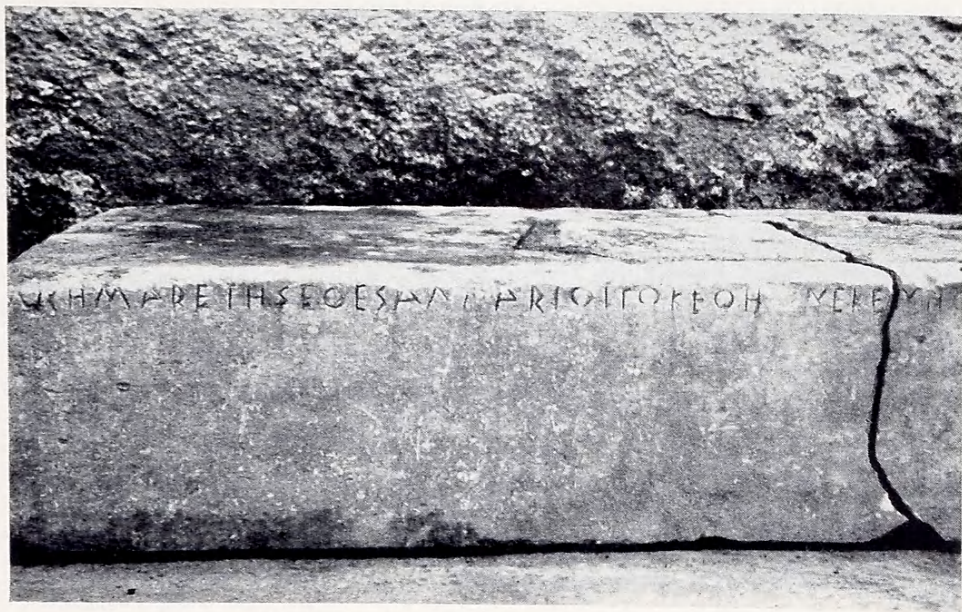 ΝΗΜΑΡΕΤΗΣΕΘΕΣΑΝΠΑΡΙΟΙΤΟΚΕΟΗ ΝΕΚΕ ΝΗ